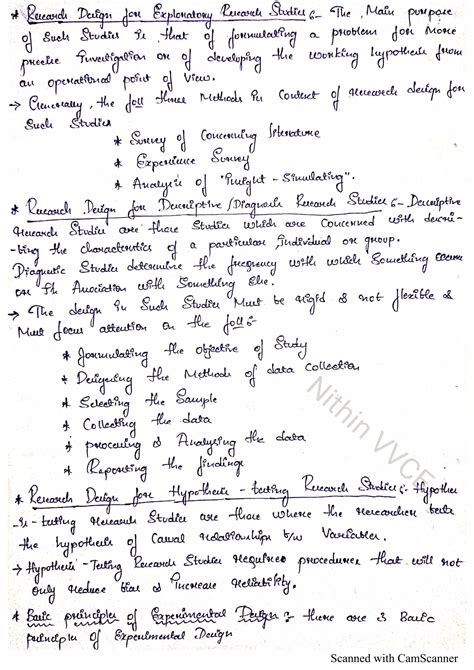 * Research Design for Exploratory Research Studies :- The Main purpose
of Such Studies is that of formulating a problem for More
precise investigation or of developing the working hypothesis from
an operational point of view.
→ Generally, the foll three Methods in Context of research design for
Such Studies
* Survey of Concerning literature
* Experience Survey
* Analysis of "Insight - Simulating".
* Research Design for Descriptive/Diagnosis Research Studies :- Descriptive
research Studies are those Studies which are Concerned with descri-
-bing the characteristics of a particular individual or group.
Diagnostic Studies determine the frequency with which Something occurs
or its Association with Something Else.
→ The design in Such Studies Must be rigid & not flexible &
Must focus attention on the foll :-
* formulating the objective of Study
* Designing the Methods of data Collection
* Selecting the Sample
* Collecting the data
* processing & Analysing the data
* Reporting the findings
Nithin VVCE
* Research Design for Hypothesis - testing Research Studies :- Hypothes
-is - testing research Studies are those where the researcher tests
the hypothesis of Causal relationships b/w Variables.
→ Hypothesis - Testing Research Studies requires procedures that will not
only reduce bias & increase reliability.
* Basic principles of Experimental Designs : there are 3 Basic
principles of Experimental Design
Scanned with CamScanner